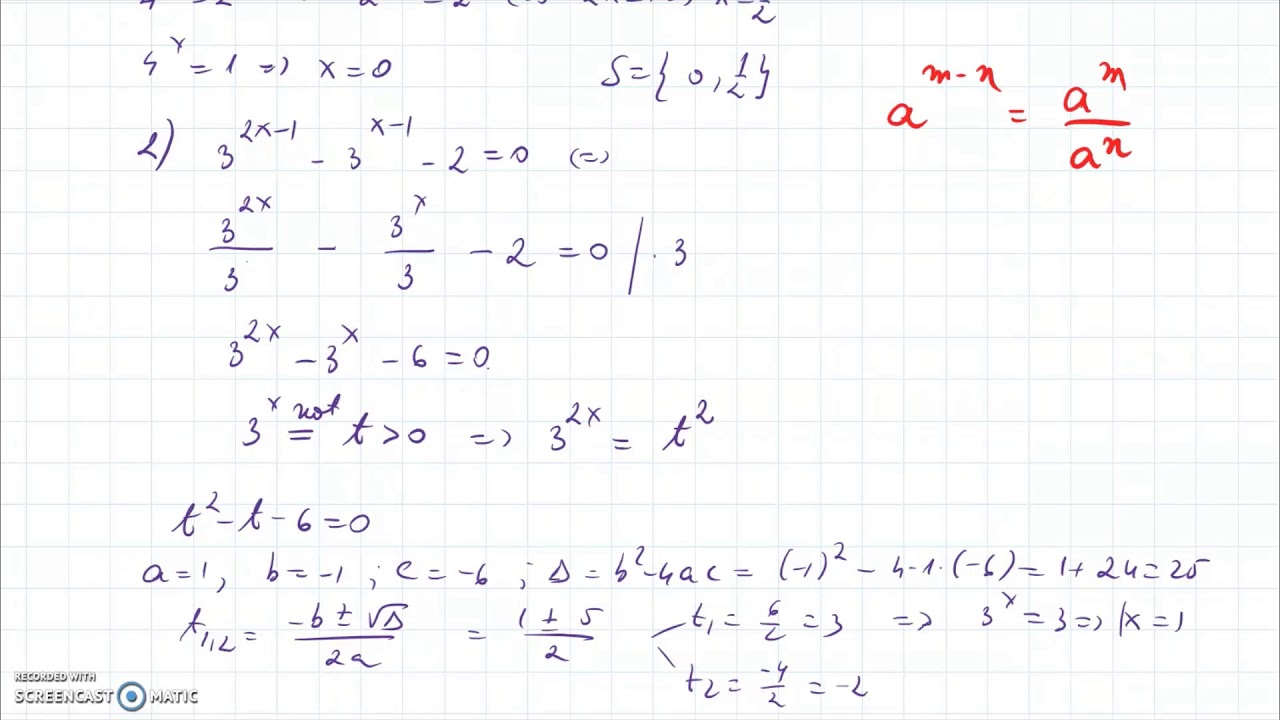 4ˣ = 1 => x = 0 S = { 0, 1/2 }
a^(m-n) = a^m / a^n
2) 3^(2x-1) - 3^(x-1) - 2 = 0 (=)
3^(2x)/3 - 3^x/3 - 2 = 0 / · 3
3^(2x) - 3^x - 6 = 0
3^x not= t > 0 => 3^(2x) = t²
t² - t - 6 = 0
a = 1, b = -1 ; c = -6 ; Δ = b² - 4ac = (-1)² - 4·1·(-6) = 1 + 24 = 25
t₁,₂ = (-b ± √Δ)/2a = (1 ± 5)/2 t₁ = 6/2 = 3 => 3^x = 3 => x = 1
t₂ = -4/2 = -2
RECORDED WITH
SCREENCAST MATIC